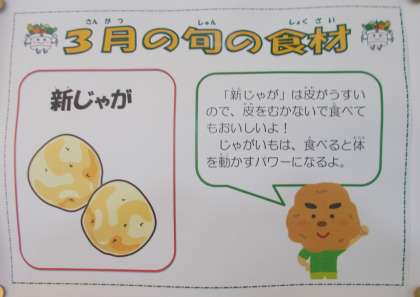 さんがつ しゅん しょくざい
3月の旬の食材
しん
新じゃが
「新じゃが」は皮がうすい
ので、皮をむかないで食べて
もおいしいよ！
じゃがいもは、食べると体
を動かすパワーになるよ。